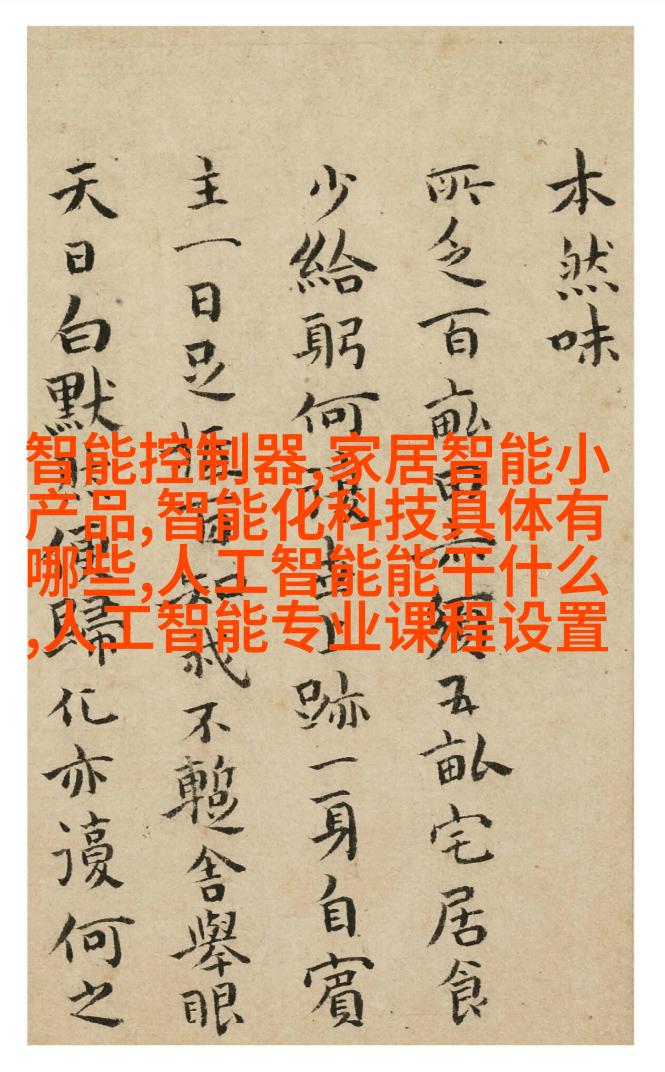 本然味
所乏百畝五畝宅居食
少給躬何上跡一身自賓
主一日足我不暫舍舉眼
天日白默歸化亦謾何之
智能控制器,家居智能小
产品,智能化科技具体有
哪些,人工智能能干什么
,人工智能专业课程设置